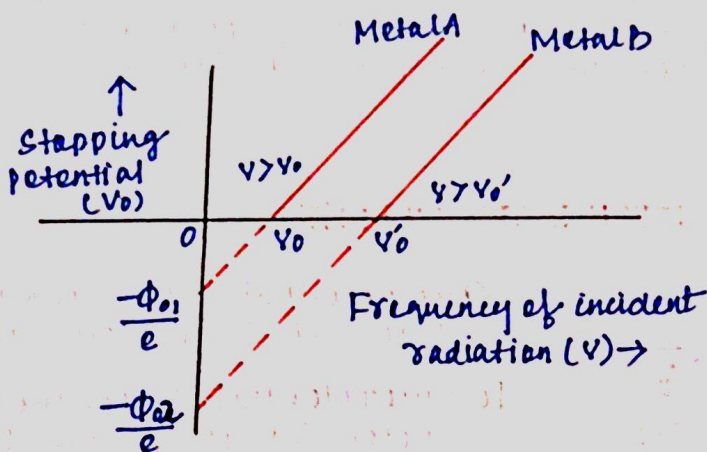 Metal A
Metal B
↑
Stopping
potential
(V₀)
ν>ν₀
ν>ν₀'
0
ν₀
ν₀'
-Φ₀₁
e
Frequency of incident
radiation (ν)→
-Φ₀₂
e